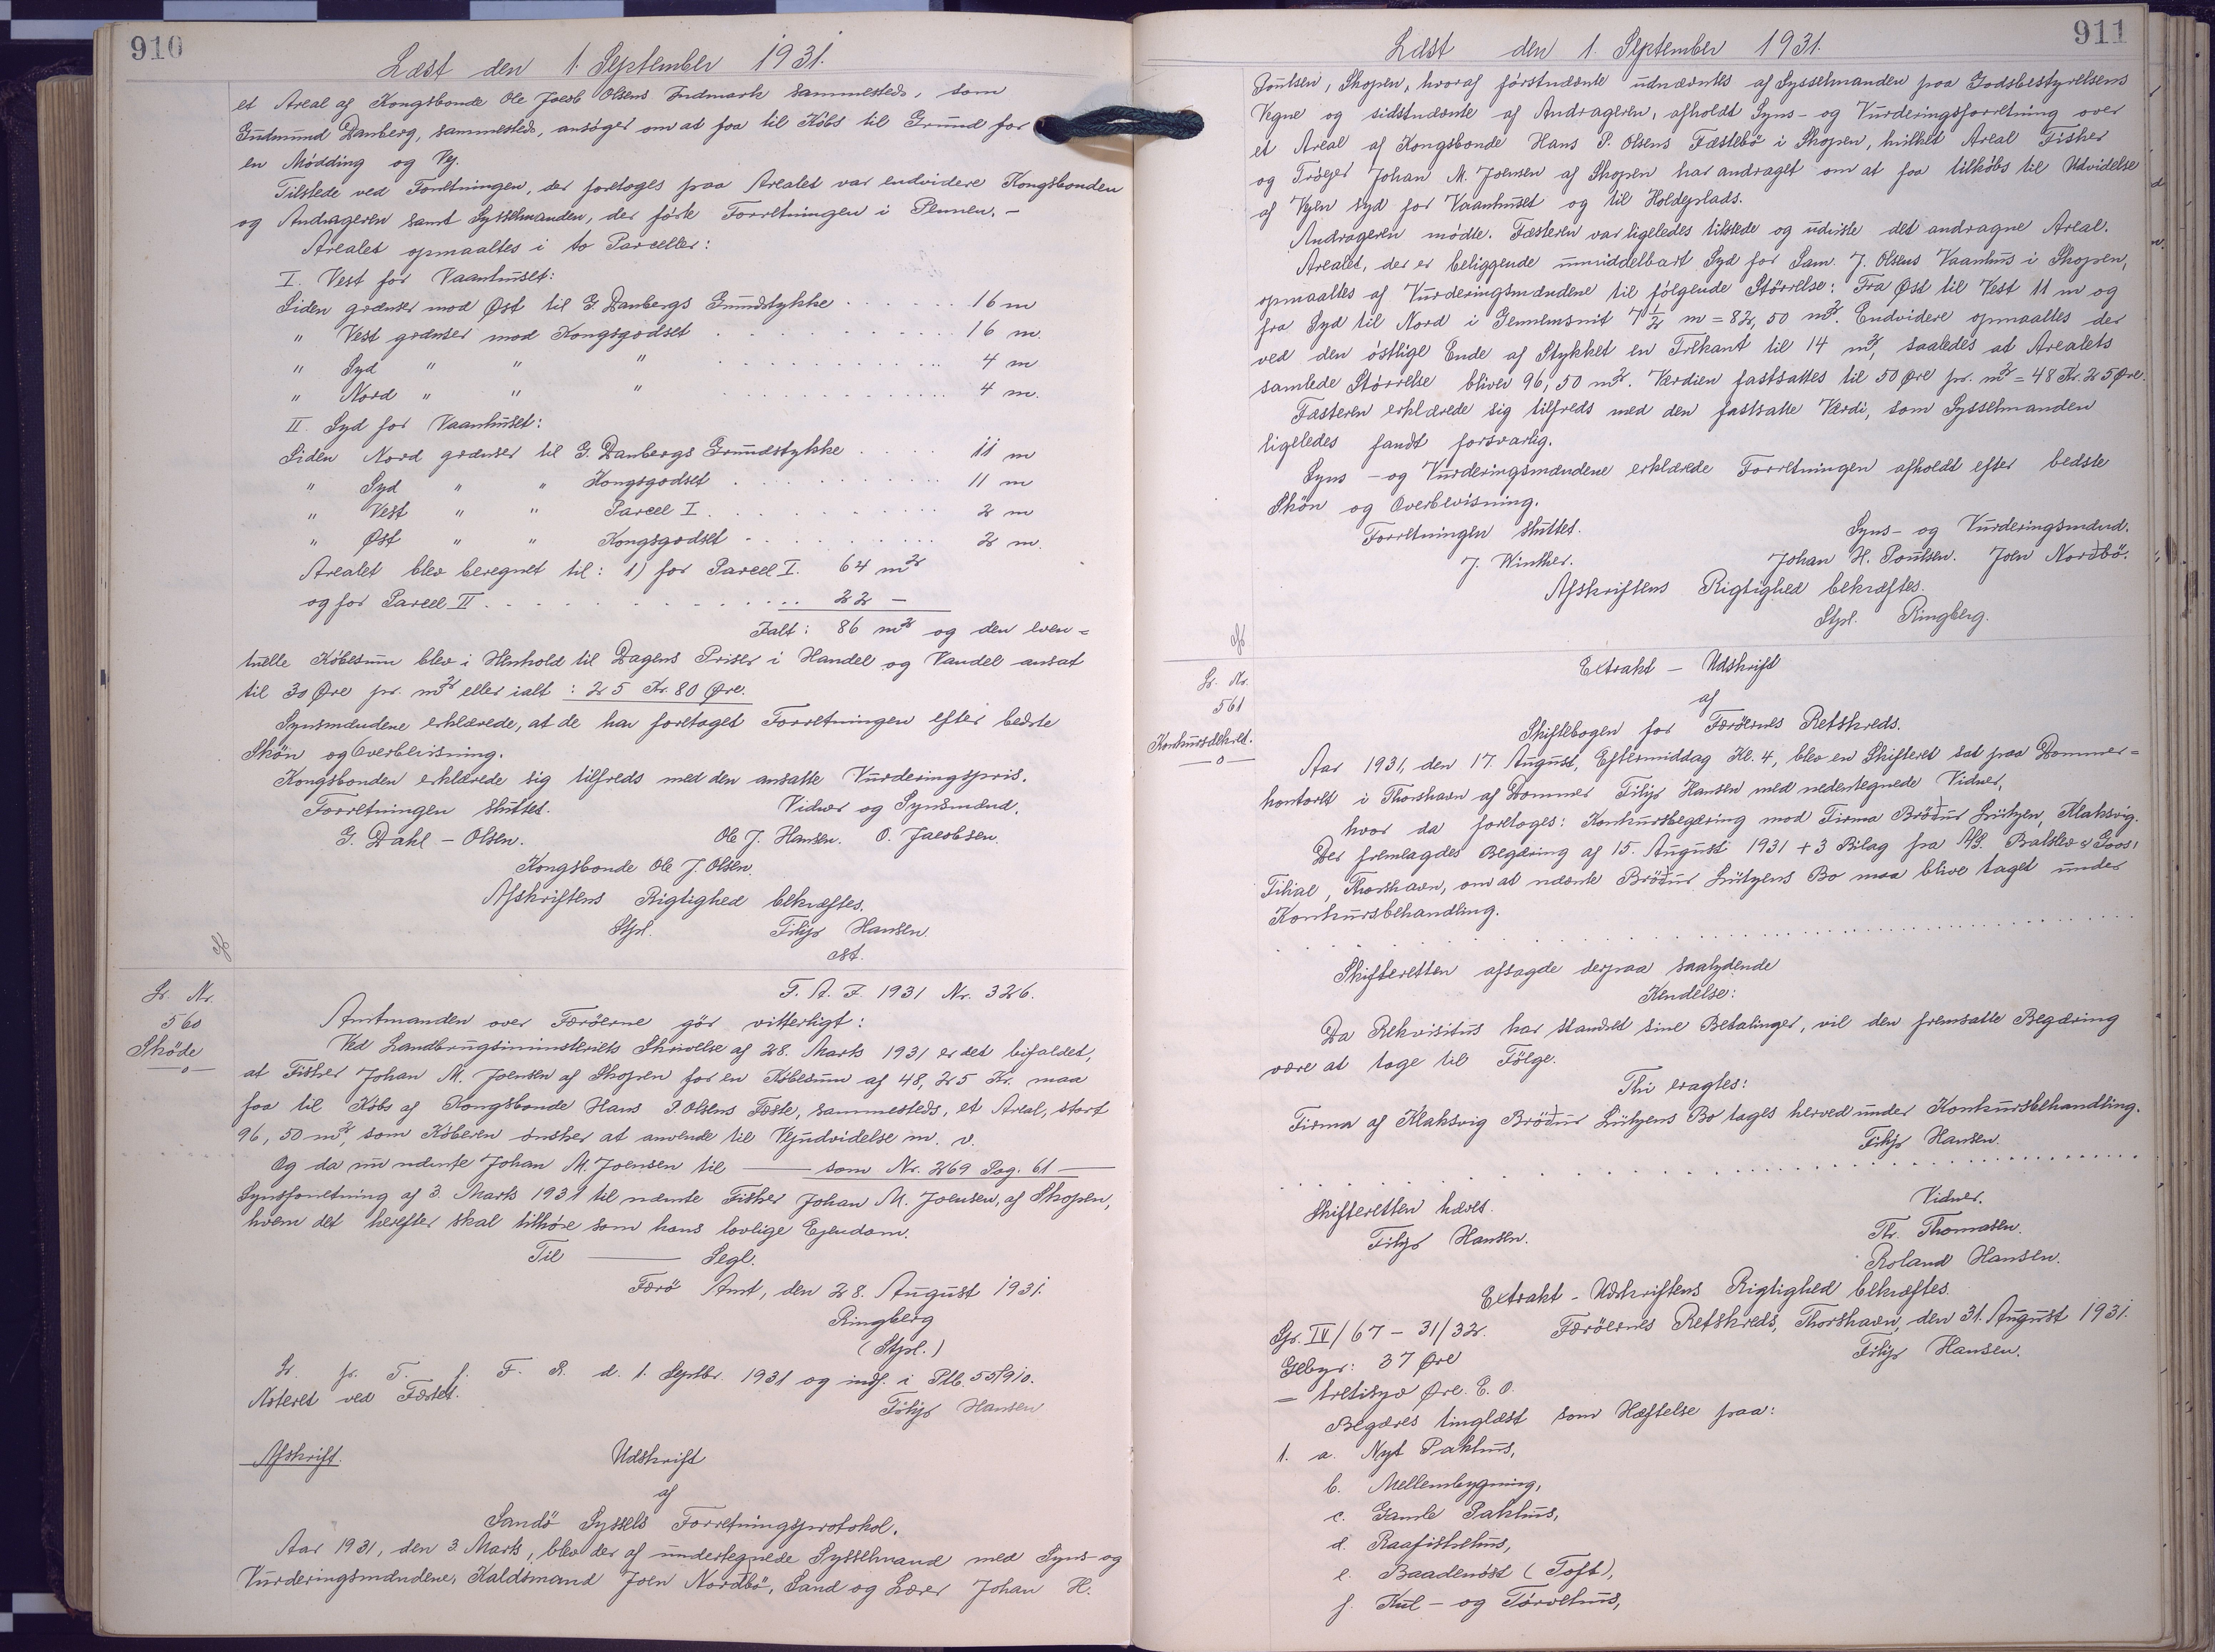 910
Læst den 1. September 1931.
et Areal af Kongsbonde Ole Jacob Olsens Indmark sammesteds, som
Gudmund Danberg, sammesteds, ansøger om at faa til Købs til Grund for
en Mødding og Vej.
Tilstede ved Forretningen, der foretoges paa Arealet var endvidere Kongsbonden
og Andrageren samt Sysselmanden, der førte Forretningen i Pennen. -
Arealet opmaaltes i to Parceller:
I. Vest for Vaanhuset:
Siden grænser mod Øst til G. Danbergs Grundstykke . . . . . . 16 m
" Vest grænser mod Kongsgodset . . . . . . 16 m.
" Syd " " " . . . . . . 4 m
" Nord " " " . . . . . . 4 m.
II. Syd for Vaanhuset:
Siden Nord grænser til G. Danbergs Grundstykke . . . . 11 m
" Syd " " Kongsgodset . . . . . . 11 m
" Vest " " Parcel I. . . . . . . 2 m
" Øst " " Kongsgodset . . . . . . 2 m.
Arealet blev beregnet til: 1) for Parcel I. 64 m²
og for Parcel II . . . . . . 22 -
Ialt: 86 m² og den even=
tuelle Købesum blev i Henhold til Dagens Priser i Handel og Vandel ansat
til 30 Øre pr. m² eller ialt: 25 Kr. 80 Øre.
Synsmændene erklærede, at de har foretaget Forretningen efter bedste
Skøn og Overbevisning.
Kongsbonden erklærede sig tilfreds med den ansatte Vurderingspris.
Forretningen sluttet. Vidner og Synsmænd.
G. Dahl - Olsen. Ole J. Hansen. O. Jacobsen.
Kongsbonde Ole J. Olsen.
Afskriftens Rigtighed bekræftes.
Stpl. Filip Hansen
cst.
T. A. J. 1931 Nr. 326.
Lr. Nr.
560
Skøde
Amtmanden over Færøerne gør vitterligt:
Ved Landbrugsministeriets Skrivelse af 28. Marts 1931 er det bifaldet,
at Fisker Johan M. Joensen af Skopen for en Købesum af 48,25 Kr. maa
faa til Købs af Kongsbonde Hans P. Olsens Fæste, sammesteds, et Areal, stort
96,50 m², som Køberen ønsker at anvende til Vejudvidelse m. v.
Og da nu nævnte Johan M. Joensen til —— som Nr. 269 Pag. 61 ——
Synsforretning af 3. Marts 1931 til nævnte Fisker Johan M. Joensen, af Skopen,
hvem det herefter skal tilhøre som hans lovlige Ejendom.
Til —— Segl.
Færø Amt, den 28. August 1931.
Ringberg
(Stpl.)
Lr. pr. T. f. F. R. d. 1. Septbr. 1931 og indf. i Ptb. 55/910.
Noteret ved Fæstet.
Filip Hansen
Afskrift.
Udskrift
af
Sandø Syssels Forretningsprotokol.
Aar 1931, den 3. Marts, blev der af undertegnede Sysselmand med Syns- og
Vurderingsmændene, Kaldsmand Joen Nordbö, Sand og Lærer Johan H.
911
Læst den 1. September 1931.
Poulsen, Skopen, hvoraf förstnævnte udnævntes af Sysselmanden paa Godsbestyrelsens
Vegne og sidstnævnte af Andrageren, afholdt Syns- og Vurderingsforretning over
et Areal af Kongsbonde Hans P. Olsens Fæstebö i Skopen, hvilket Areal Fisker
og Tröjer Johan M. Joensen af Skopen har andraget om at faa tilkøbs til Udvidelse
af Vejen Syd for Vaanhuset og til Holdeplads.
Andrageren mödte. Fæsteren var ligeledes tilstede og udviste det andragne Areal.
Arealet, der er beliggende umiddelbart Syd for Sam. J. Olsens Vaanhus i Skopen,
opmaaltes af Vurderingsmændene til følgende Störrelse: Fra Øst til Vest 11 m og
fra Syd til Nord i Gennemsnit 7½ m = 82,50 m². Endvidere opmaaltes der
ved den östlige Ende af Stykket en Trekant til 14 m², saaledes at Arealets
samlede Störrelse bliver 96,50 m². Værdien fastsattes til 50 Øre pr. m² = 48 Kr. 25 Øre.
Fæsteren erklærede sig tilfreds med den fastsatte Værdi, som Sysselmanden
ligeledes fandt forsvarlig.
Syns - og Vurderingsmændene erklærede Forretningen afholdt efter bedste
Skön og Overbevisning.
Forretningen sluttet. Syns- og Vurderingsmænd.
J. Winther. Johan H. Poulsen. Joen Nordbö.
Afskriftens Rigtighed bekræftes.
Stpl. Ringberg.
Lr. Nr.
561
Konkursdekret.
Extrakt - Udskrift
af
Skiftebogen for Færöernes Retskreds.
Aar 1931, den 17. August, Eftermiddag Kl. 4, blev en Skifteret sat paa Dommer=
kontoret i Thorshavn af Dommer Filip Hansen med nedentegnede Vidner,
hvor da foretoges: Konkursbegæring mod Firma Bröður Lützen, Klaksvig.
Der fremlagdes Begæring af 15. August 1931 + 3 Bilag fra A/S. Balslev & Goos'
Filial, Thorshavn, om at nævnte Bröður Lützens Bo maa blive taget under
Konkursbehandling.
Skifteretten afsagde derpaa saalydende
Kendelse:
Da Rekvisitus har standset sine Betalinger, vil den fremsatte Begæring
være at tage til Fölge.
Thi eragtes:
Firma af Klaksvig Bröður Lützens Bo tages herved under Konkursbehandling.
Filip Hansen.
Skifteretten hævet.
Vidner.
Filip Hansen. Th. Thomasen.
Roland Hansen.
Extrakt - Udskriftens Rigtighed bekræftes.
Færöernes Retskreds, Thorshavn, den 31. August 1931.
Filip Hansen.
Gr. IV/67 - 31/32.
Gebyr: 37 Øre
= tretisyv Øre. E. O.
Begæres tinglæst som Hæftelse paa:
1. a. Nyt Pakhus,
b. Mellembygning,
c. Gamle Pakhus,
d. Raafiskehus,
e. Baadenøst (Toft),
f. Kul - og Törvehus,